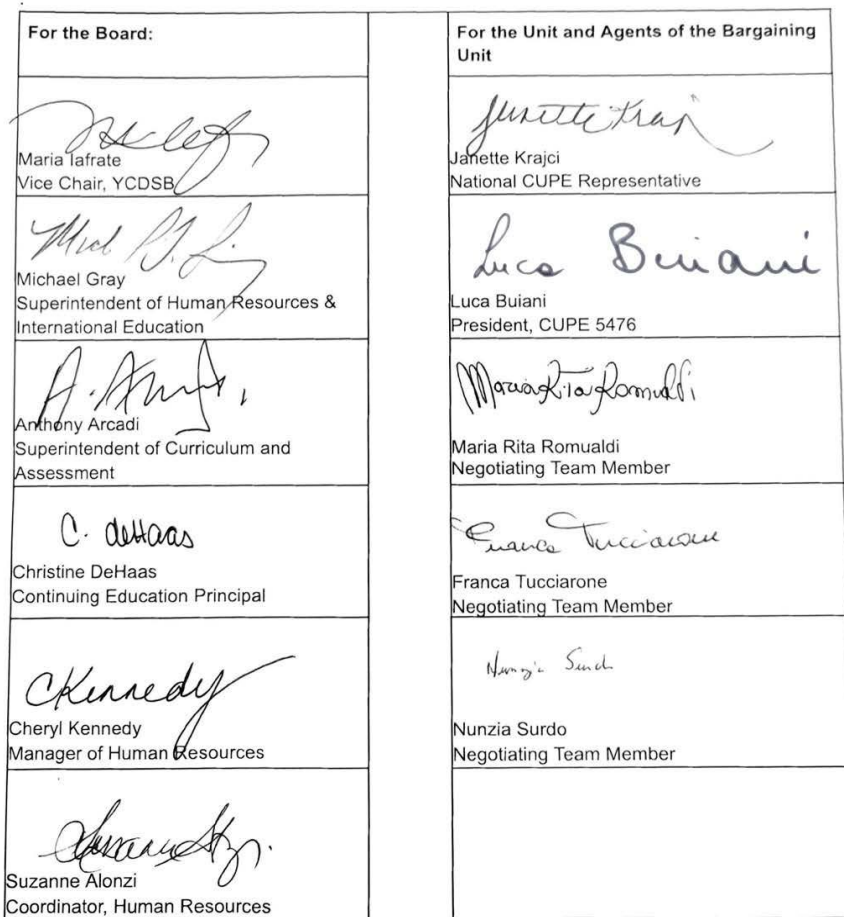 For the Board:
Maria Iafrate
Vice Chair, YCDSB
Michael Gray
Superintendent of Human Resources &
International Education
A.
Anthony Arcadi
Superintendent of Curriculum and
Assessment
C. deHaas
Christine DeHaas
Continuing Education Principal
CKennedy
Cheryl Kennedy
Manager of Human Resources
Suzanne Alonzi
Coordinator, Human Resources
For the Unit and Agents of the Bargaining
Unit
Janette Krajci
National CUPE Representative
Luca Buiani
Luca Buiani
President, CUPE 5476
Maria Rita Romualdi
Maria Rita Romualdi
Negotiating Team Member
Franca Tucciarone
Franca Tucciarone
Negotiating Team Member
Nunzia Surdo
Negotiating Team Member